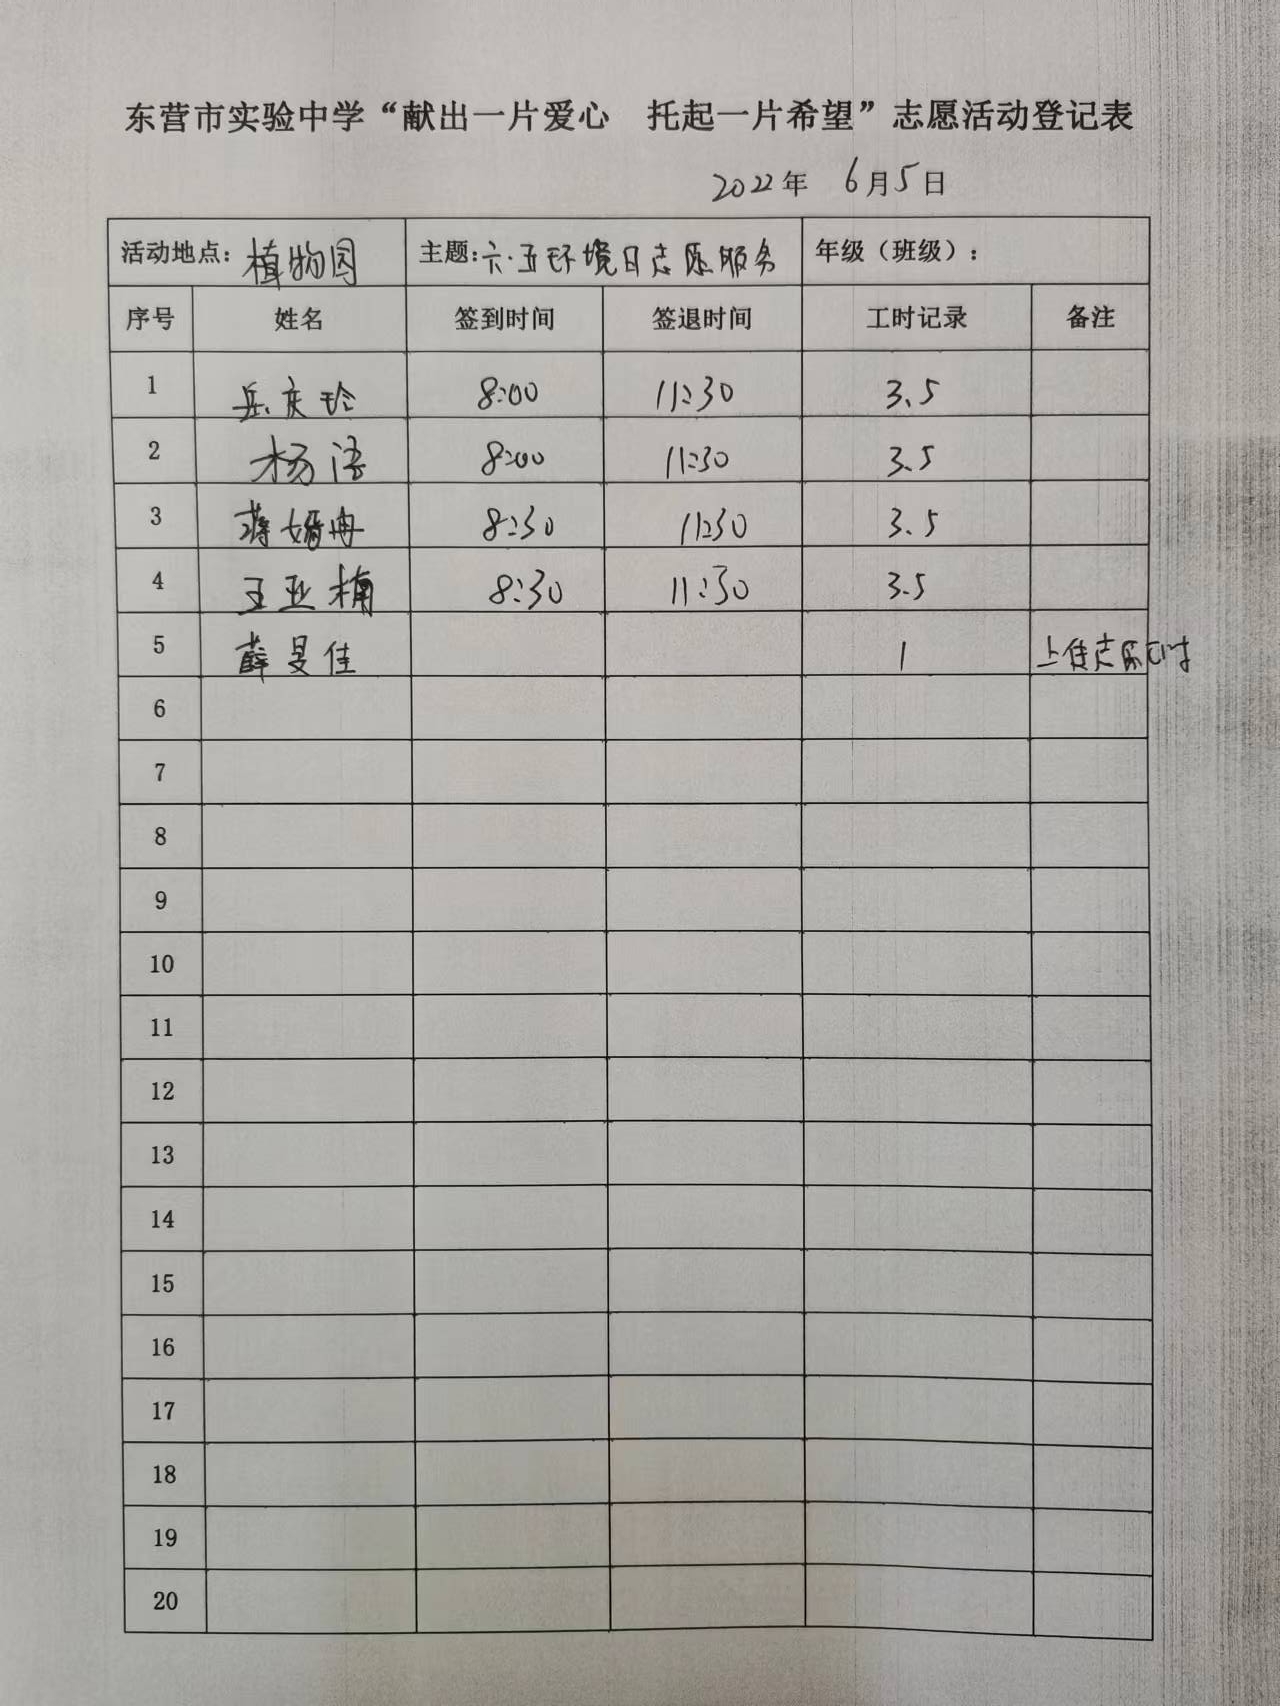 东营市实验中学“献出一片爱心 托起一片希望”志愿活动登记表
2022年 6月5日
活动地点：植物园 主题：六·五环境日志愿服务 年级（班级）：
序号 姓名 签到时间 签退时间 工时记录 备注
1 岳庆玲 8:00 11:30 3.5
2 杨洁 8:00 11:30 3.5
3 蒋婧冉 8:30 11:30 3.5
4 王亚楠 8:30 11:30 3.5
5 薛旻佳 1 上传志愿工时
6
7
8
9
10
11
12
13
14
15
16
17
18
19
20